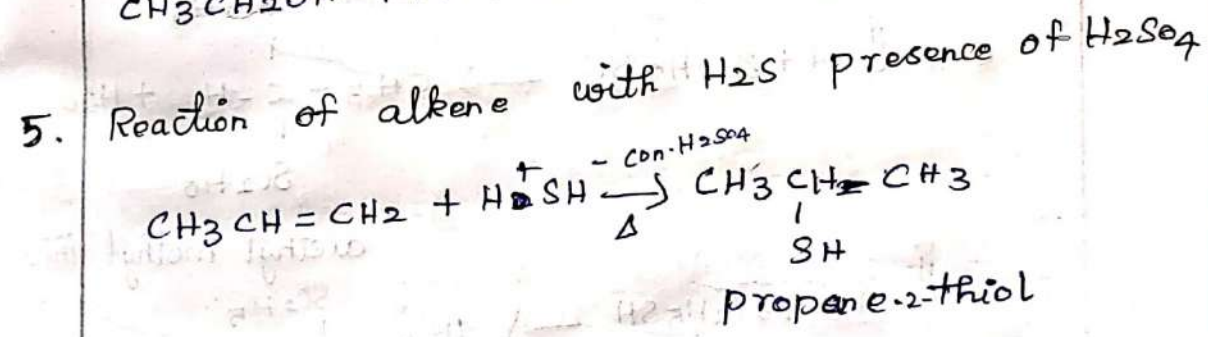 5. Reaction of alkene with H2S presence of H2SO4
CH3 CH = CH2 + H + SH - con.H2SO4 → CH3 CH - CH3
Δ
SH
propane-2-thiol